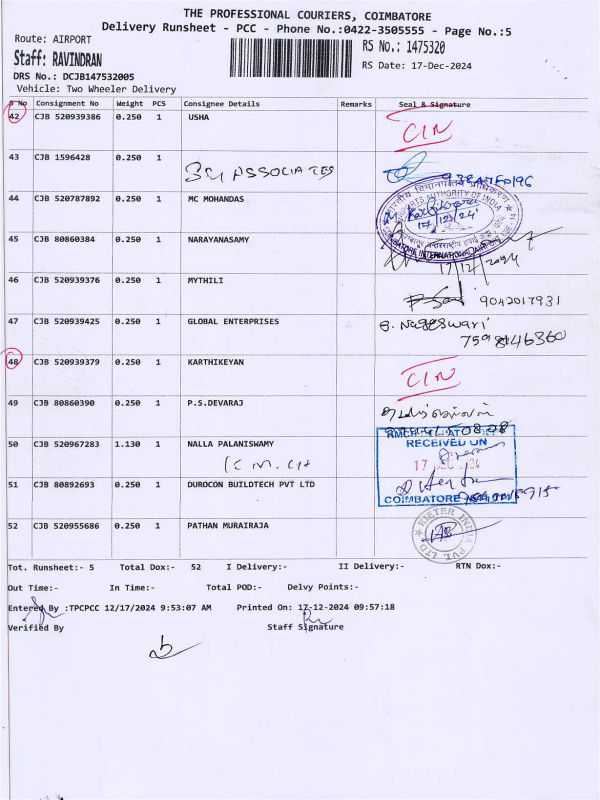 THE PROFESSIONAL COURIERS, COIMBATORE
Delivery Runsheet - PCC - Phone No.:0422-3505555 - Page No.:5
Route: AIRPORT
RS No.: 1475320
Staff: RAVINDRAN
RS Date: 17-Dec-2024
DRS No.: DCJB147532005
Vehicle: Two Wheeler Delivery
S No Consignment No Weight PCS Consignee Details Remarks Seal & Signature
42 CJB 520939386 0.250 1 USHA
43 CJB 1596428 0.250 1
Sri ASSOCIATES
44 CJB 520787892 0.250 1 MC MOHANDAS
AIRPORTS AUTHORITY OF INDIA
17/12/24
COIMBATORE INTERNATIONAL AIRPORT
45 CJB 80860384 0.250 1 NARAYANASAMY
17/12/2024
46 CJB 520939376 0.250 1 MYTHILI
9042017931
47 CJB 520939425 0.250 1 GLOBAL ENTERPRISES B. Nageswari
7598146360
48 CJB 520939379 0.250 1 KARTHIKEYAN
49 CJB 80860390 0.250 1 P.S.DEVARAJ
50 CJB 520967283 1.130 1 NALLA PALANISWAMY
K M CH
RECEIVED ON
17 DEC 2024
COIMBATORE
51 CJB 80892693 0.250 1 DUROCON BUILDTECH PVT LTD
52 CJB 520955686 0.250 1 PATHAN MURAIRAJA
RIETER INDIA PVT. LTD
Tot. Runsheet:- 5 Total Dox:- 52 I Delivery:- II Delivery:- RTN Dox:-
Out Time:- In Time:- Total POD:- Delvy Points:-
Entered By :TPCPCC 12/17/2024 9:53:07 AM Printed On: 17-12-2024 09:57:18
Verified By Staff Signature